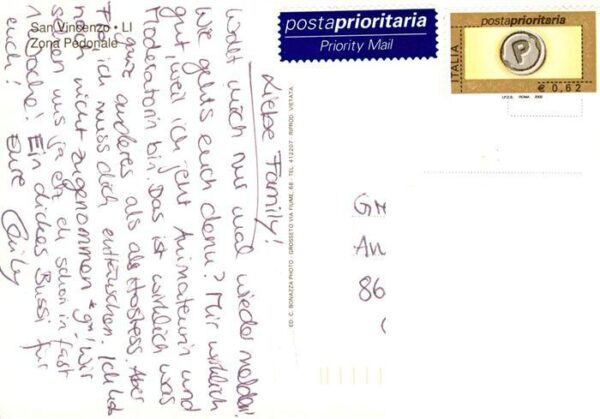 San Vincenzo • LI
Zona Pedonale
postaprioritaria
Priority Mail
postaprioritaria
ITALIA
P
€ 0,62
I.P.Z.S. ROMA 2002
Liebe Family!
Wollt mich nur mal wieder melden!
Wie gehts euch denn? Mir wirklich
gut, weil ich jetzt Animateurin und
Moderatorin bin. Das ist wirklich was
ganz anderes als als Hostess. Aber
ich muss dich enttäuschen. Ich hab
noch nicht zugenommen *gr*! Wir
sehen uns ja eh schon in fast
1 Woche! Ein dickes Bussi für
euch! Eure
ED. C. BONAZZA PHOTO GROSSETO VIA FIUME, 68 TEL 412207 RIPROD. VIETATA
GM
An
86